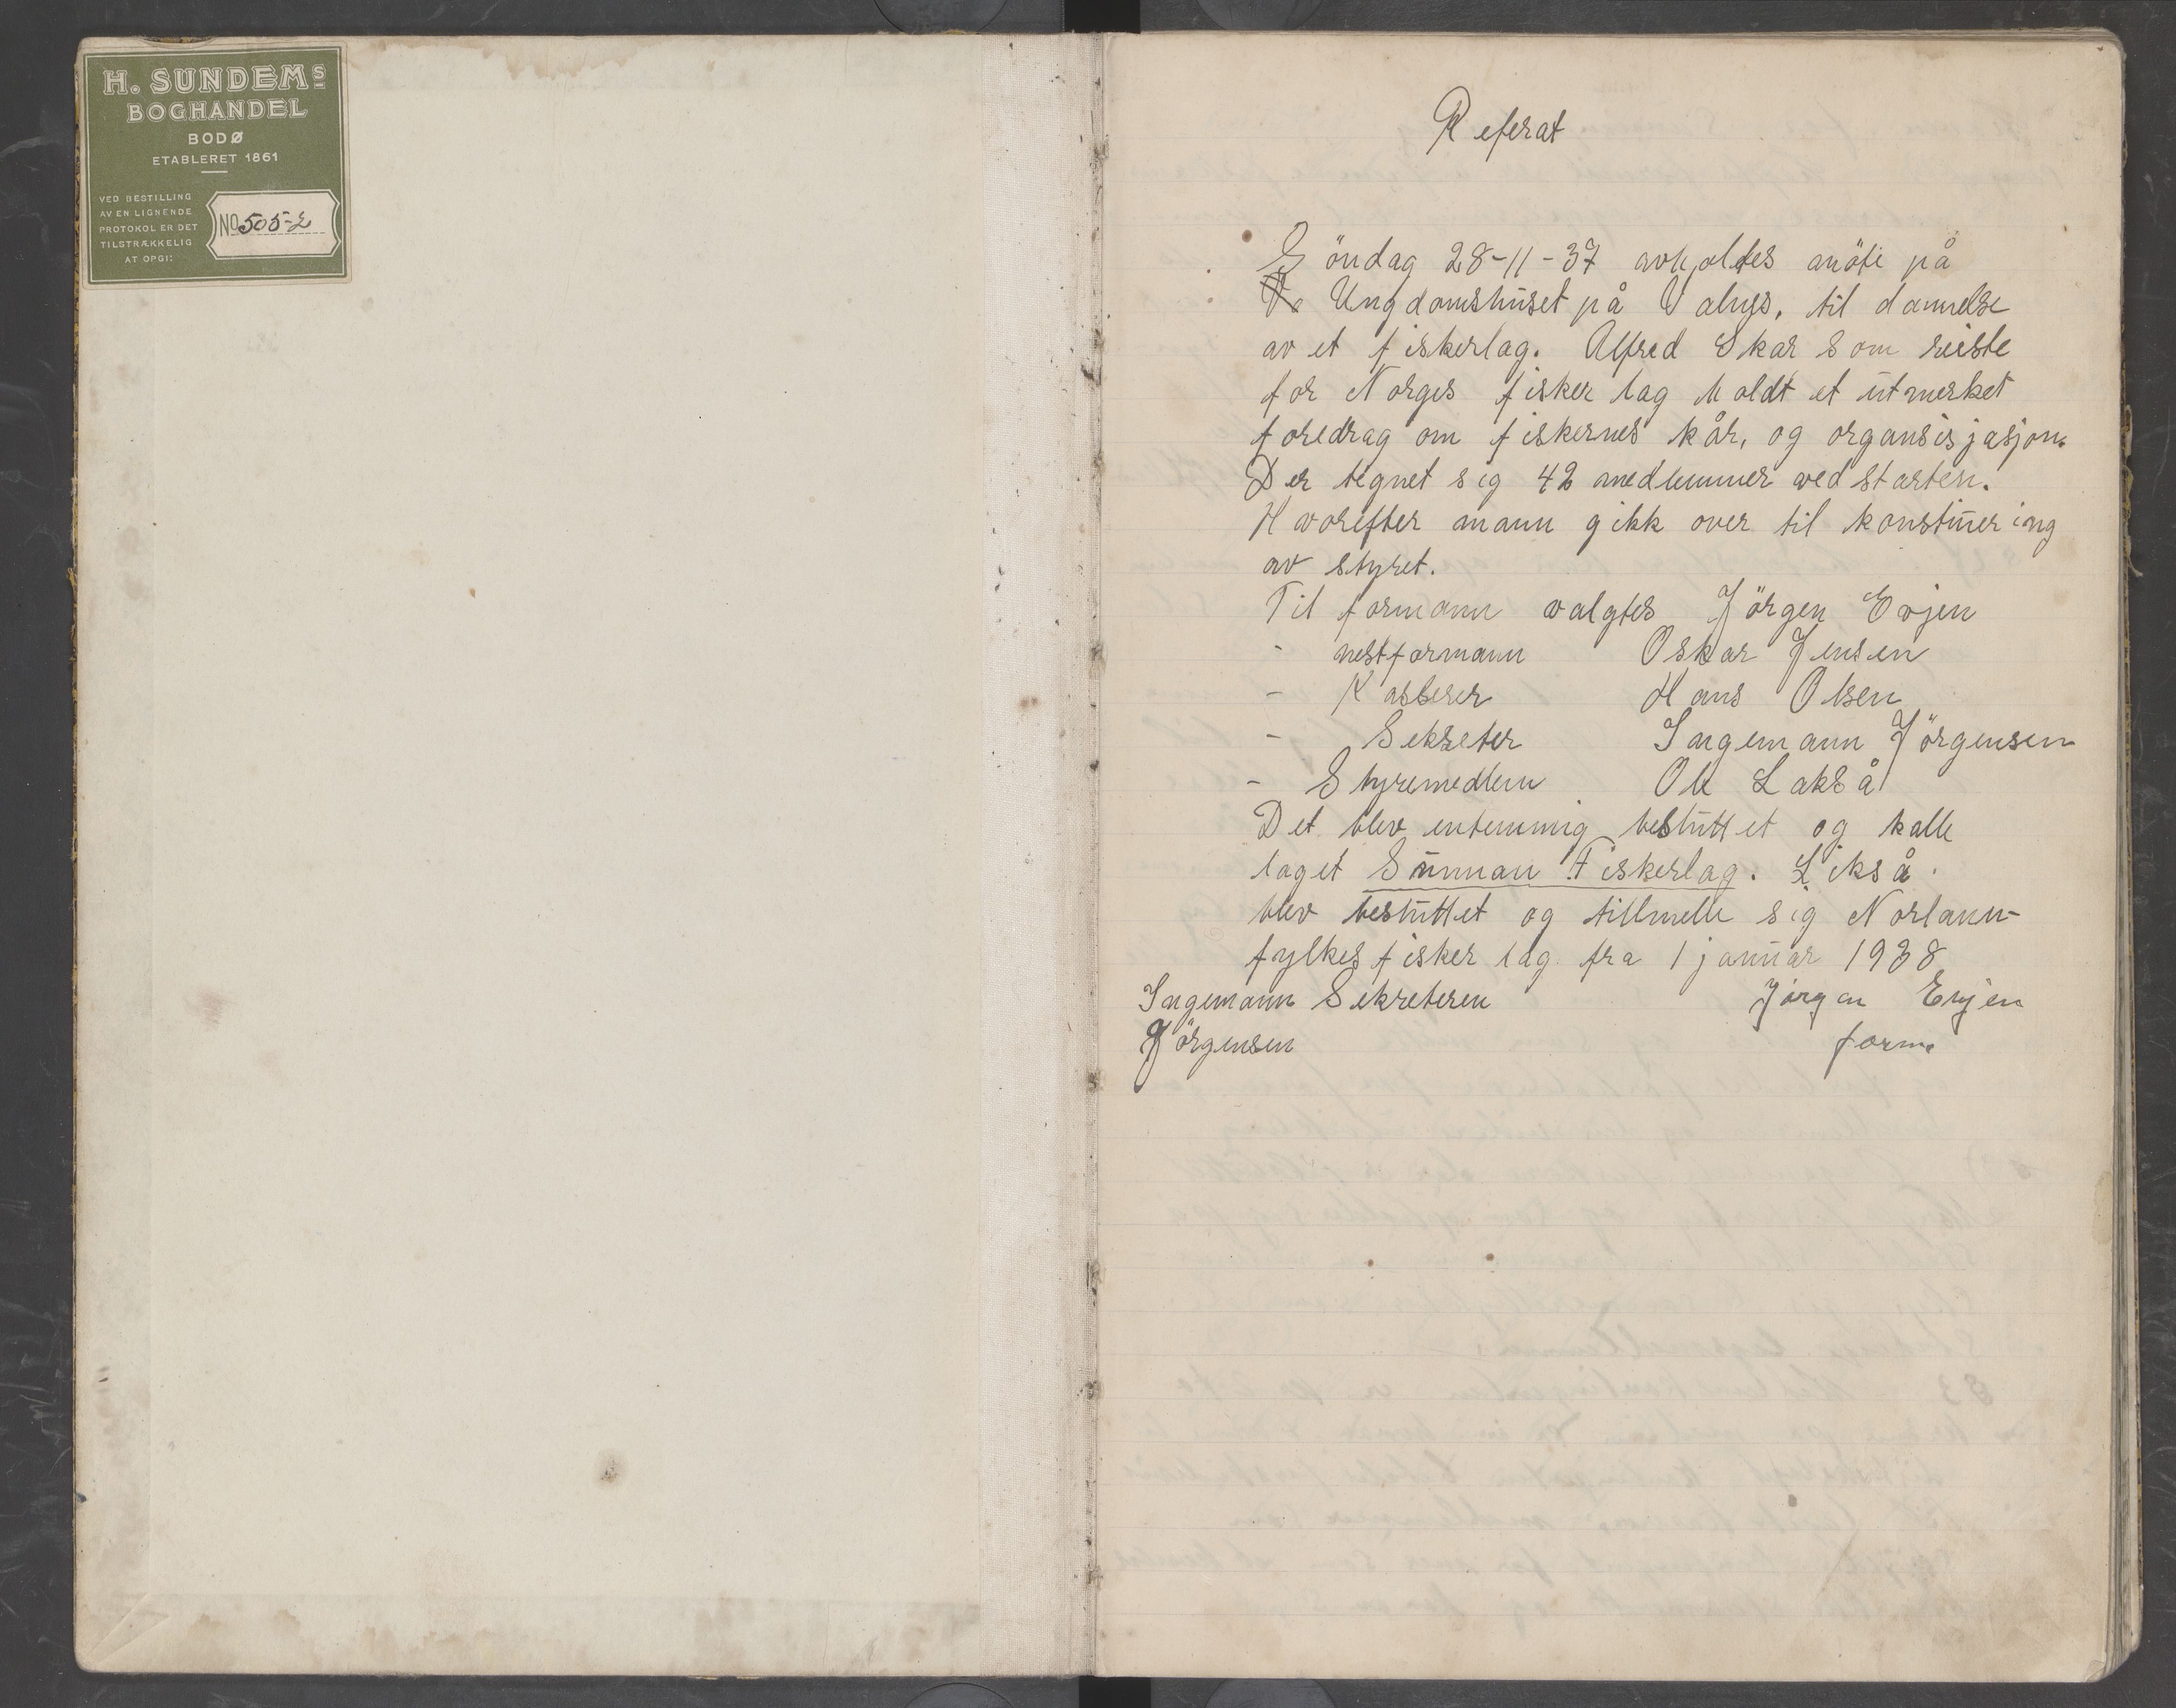 H. SUNDEMS
BOGHANDEL
BODØ
ETABLERET 1861
VED BESTILLING
AV EN LIGNENDE
PROTOKOL ER DET
TILSTRÆKKELIG
AT OPGI:
No 505-2
Referat
Söndag 28-11-37 avholdes möte på
Ungdomshuset på Valnes, til dannelse
av et fiskerlag. Alfred Skar som reiste
for Norges fisker lag holdt et utmerket
foredrag om fiskernes kår, og organsisjasjon.
Der tegnet sig 42 medlemmer ved starten.
Hvorefter mann gikk over til konstiuering
av styret.
Til formann valgtes Jörgen Evjen
- nestformann Oskar Jensen
- Kasserer Hans Olsen
- Sekreter Ingemann Jörgensen
- Styremedlem Ole Lakså
Det blev enstemmig besluttet og kalle
laget Sunnan Fiskerlag. Likså
blev besluttet og tillmelle sig Norlann-
fylkes fisker lag fra 1 januar 1938
Ingemann Sekreteren Jörgen Evjen
Jörgensen form.